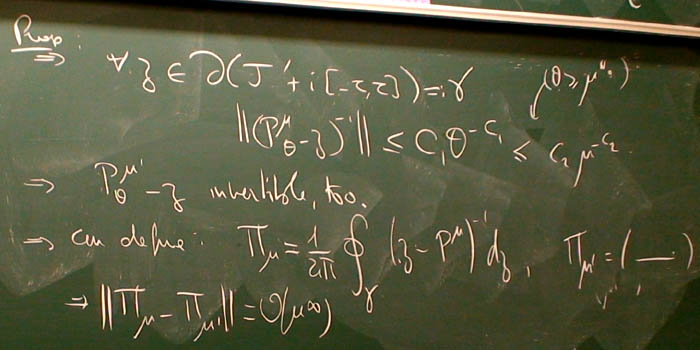 Prop:
⇒ ∀ z ∈ ∂(J' + i[-τ,τ]) =: γ (θ ≥ μ^N)
‖(P_θ^μ - z)^{-1}‖ ≤ C_1 θ^{-C_1} ≤ C_2 μ^{-C_2}
⇒ P_θ^{μ'} - z invertible, too.
⇒ can define: Π_μ = 1/2π ∮_γ (z - P^μ)^{-1} dz, Π_{μ'} = ( — )
⇒ ‖Π_μ - Π_{μ'}‖ = O(μ^∞)